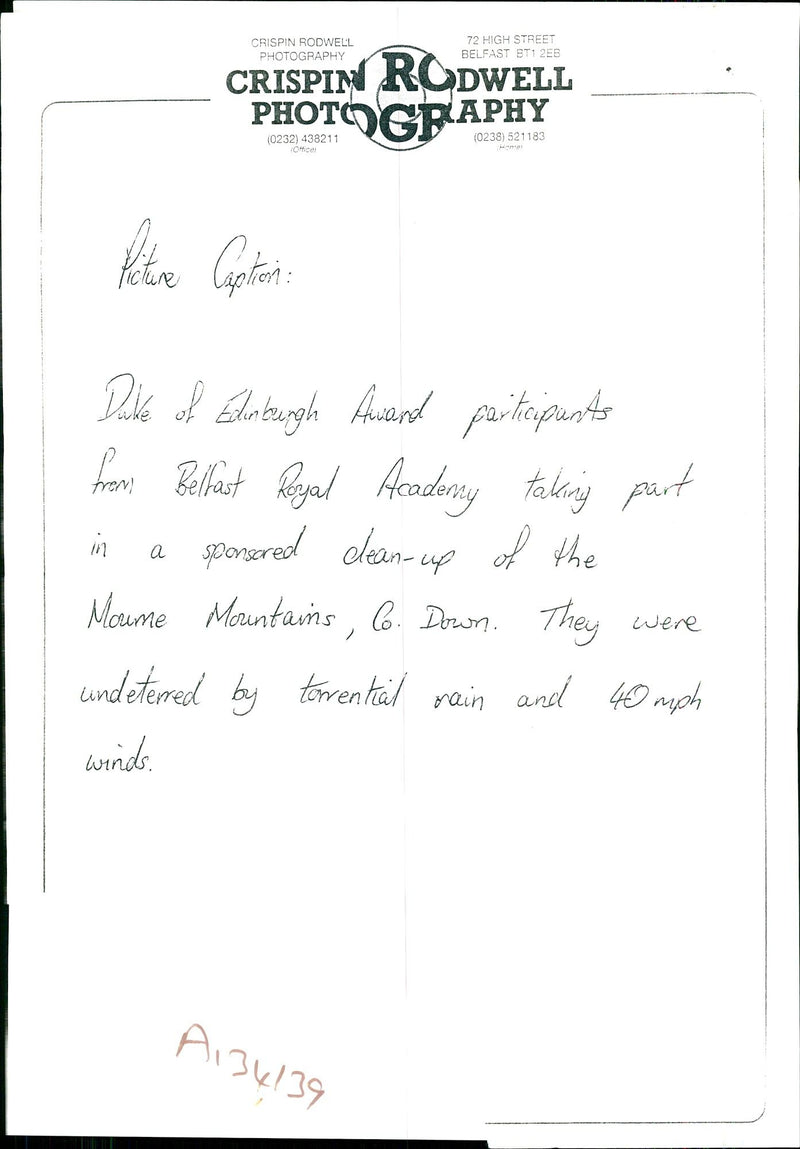 CRISPIN RODWELL
PHOTOGRAPHY
72 HIGH STREET
BELFAST BT1 2EB
CRISPIN RODWELL
PHOTOGRAPHY
(0232) 438211
(Office)
(0238) 521183
(Home)
Picture Caption:
Duke of Edinburgh Award participants
from Belfast Royal Academy taking part
in a sponsored clean-up of the
Mourne Mountains, Co. Down. They were
undeterred by torrential rain and 40 mph
winds.
A134/39